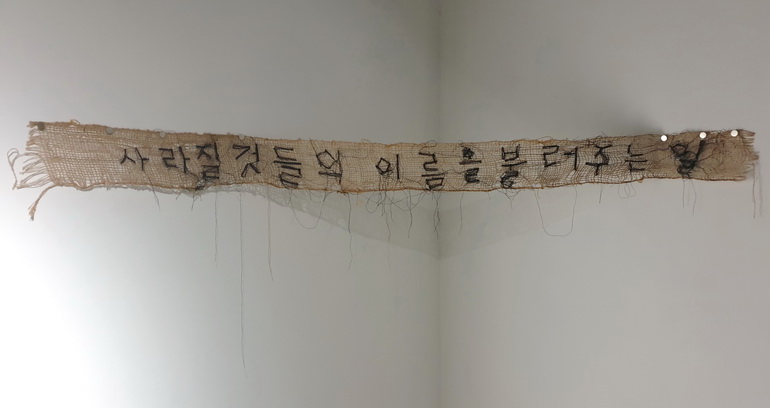 사라질것들의 이름을불러주는 일